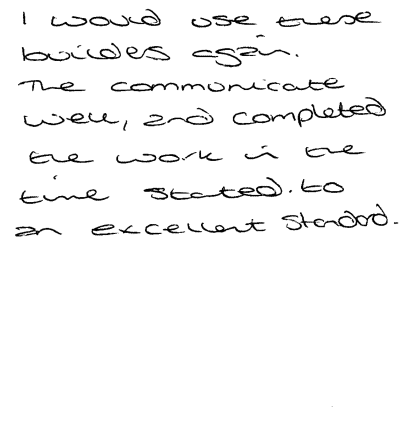 I would use these
builders again.
The communicate
well, and completed
the work in the
time stated. to
an excellent standard.